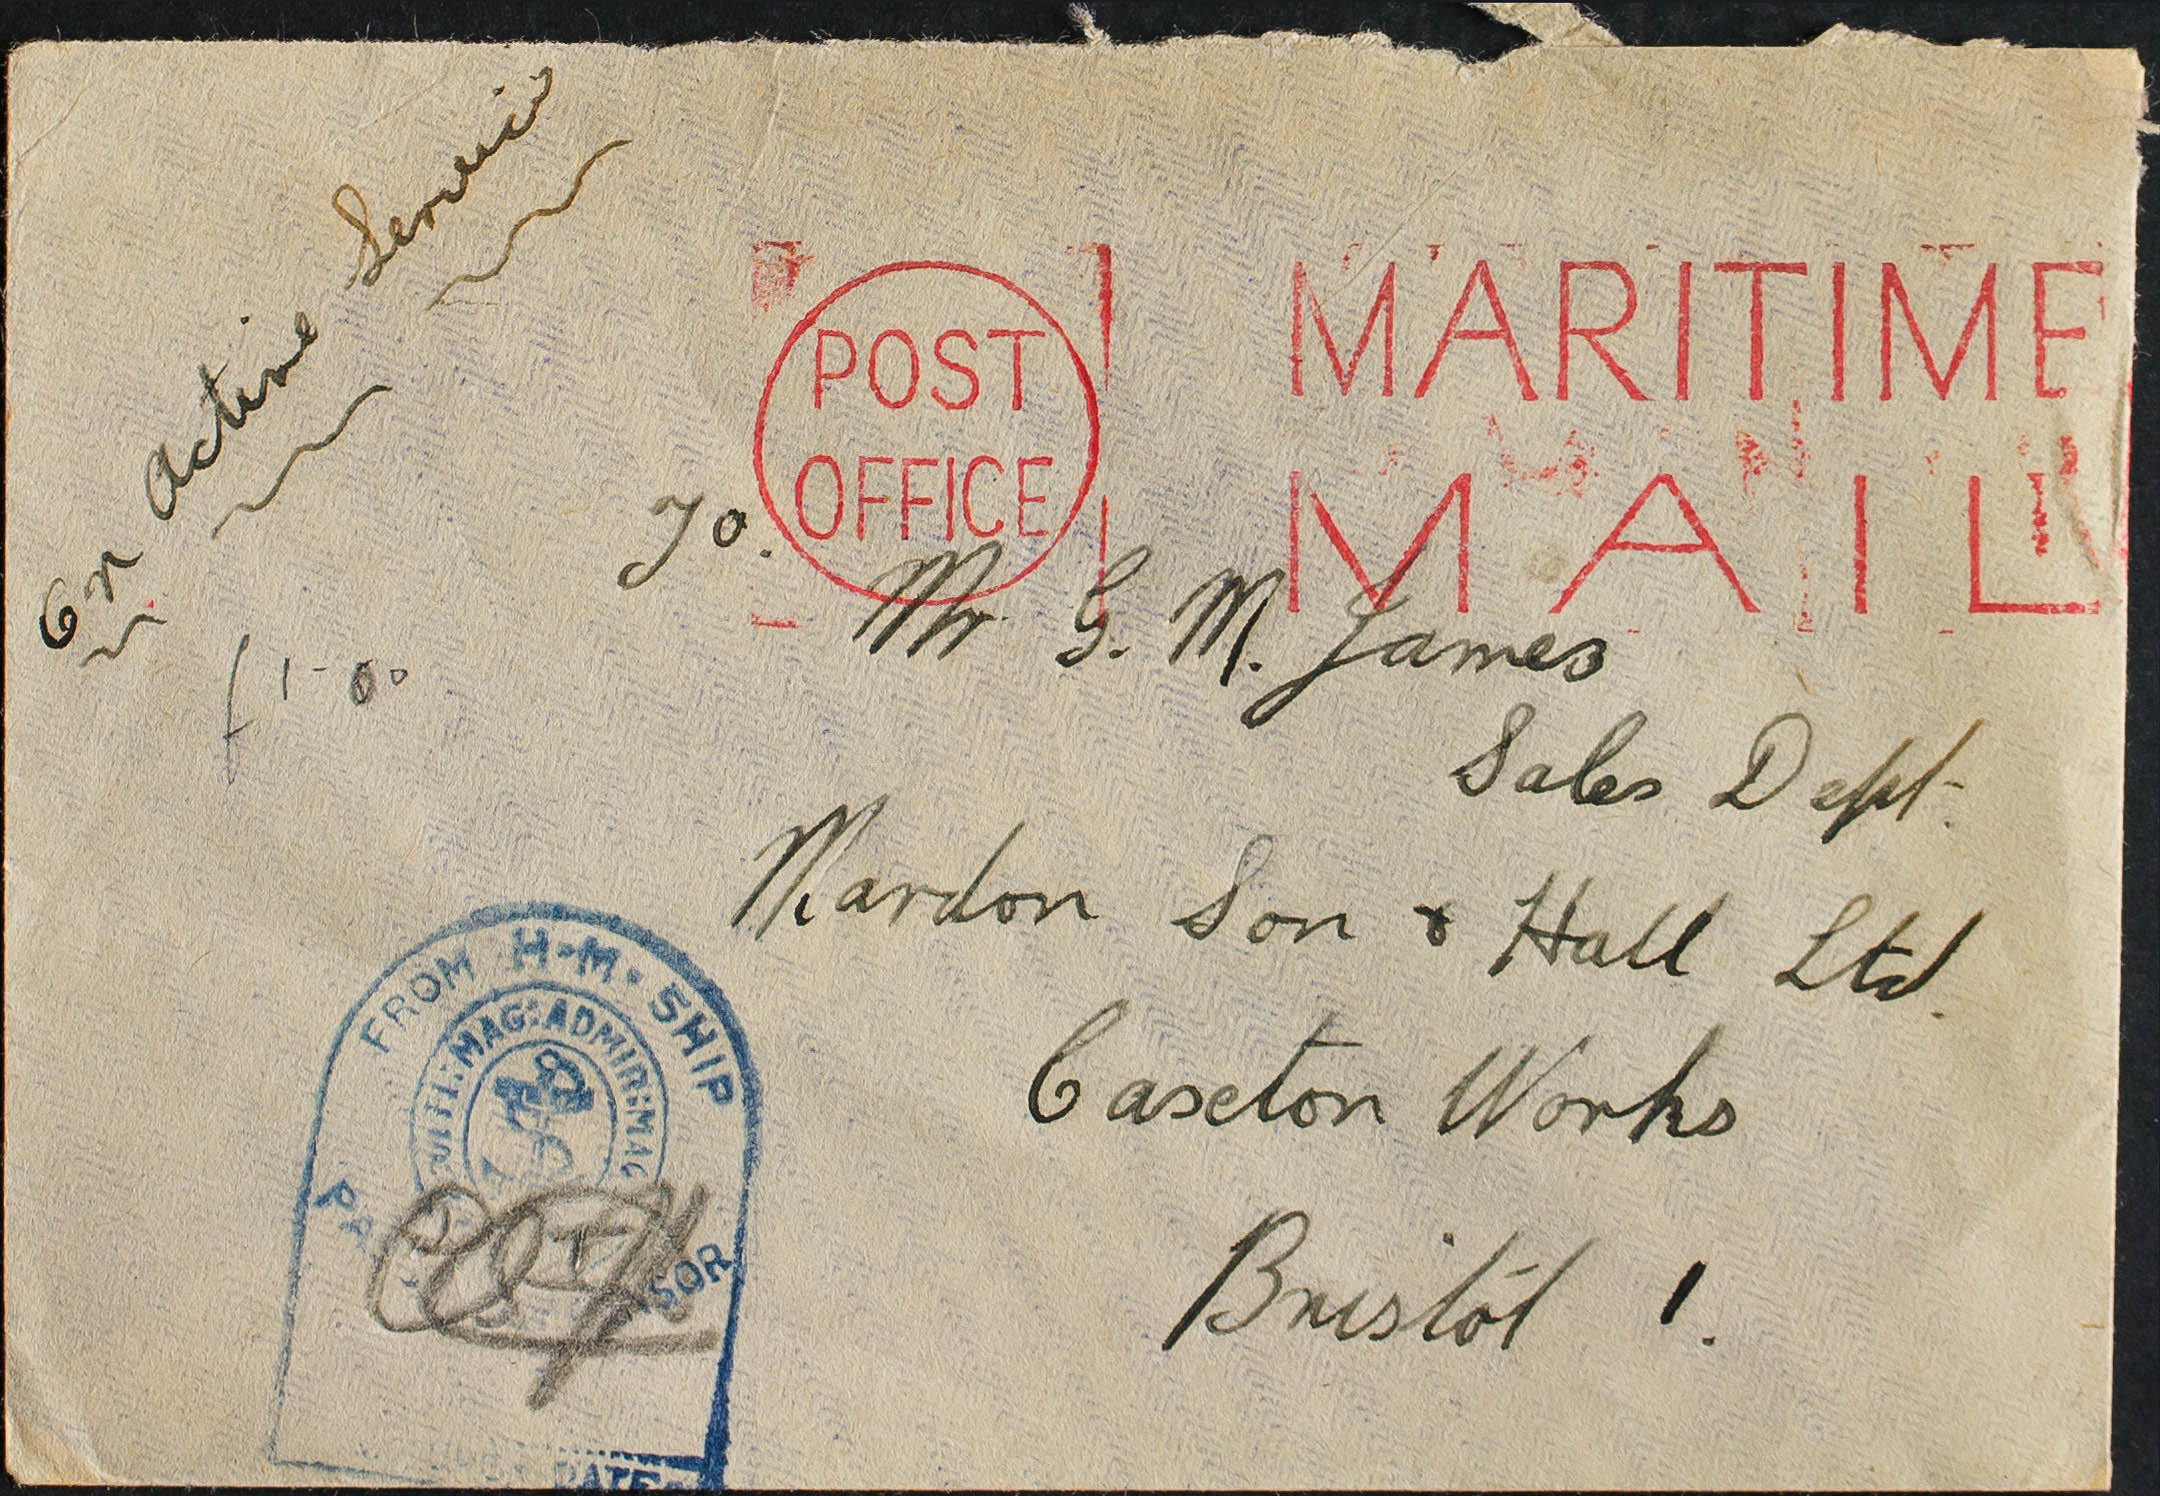 On Active Service
POST
OFFICE
MARITIME
MAIL
To.
Mr G. M. James
Sales Dept.
Mardon Son & Hall Ltd.
Caxton Works
Bristol 1.
1-00
FROM H·M·SHIP
MAG: ADMIR: MAG
DATE